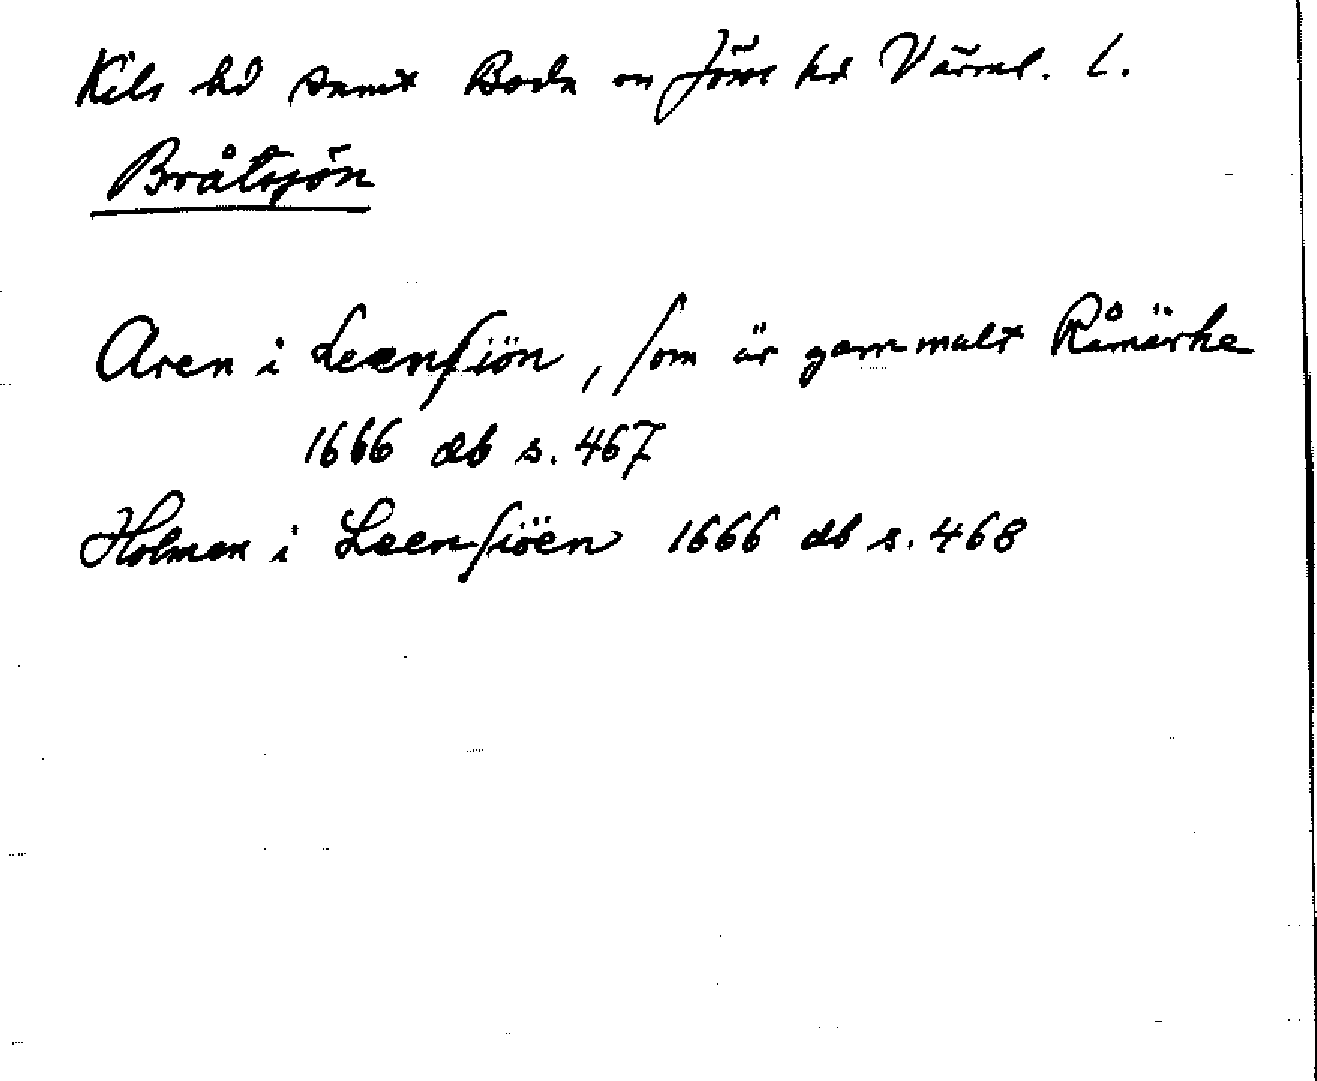 Kils hd samt Boda sn Jösse hd Värml. l.
Bråtsjön
Aren i Leensjön, som är gammalt Råmärke
1666 db s. 467
Holmen i Leensjöen 1666 db s. 468